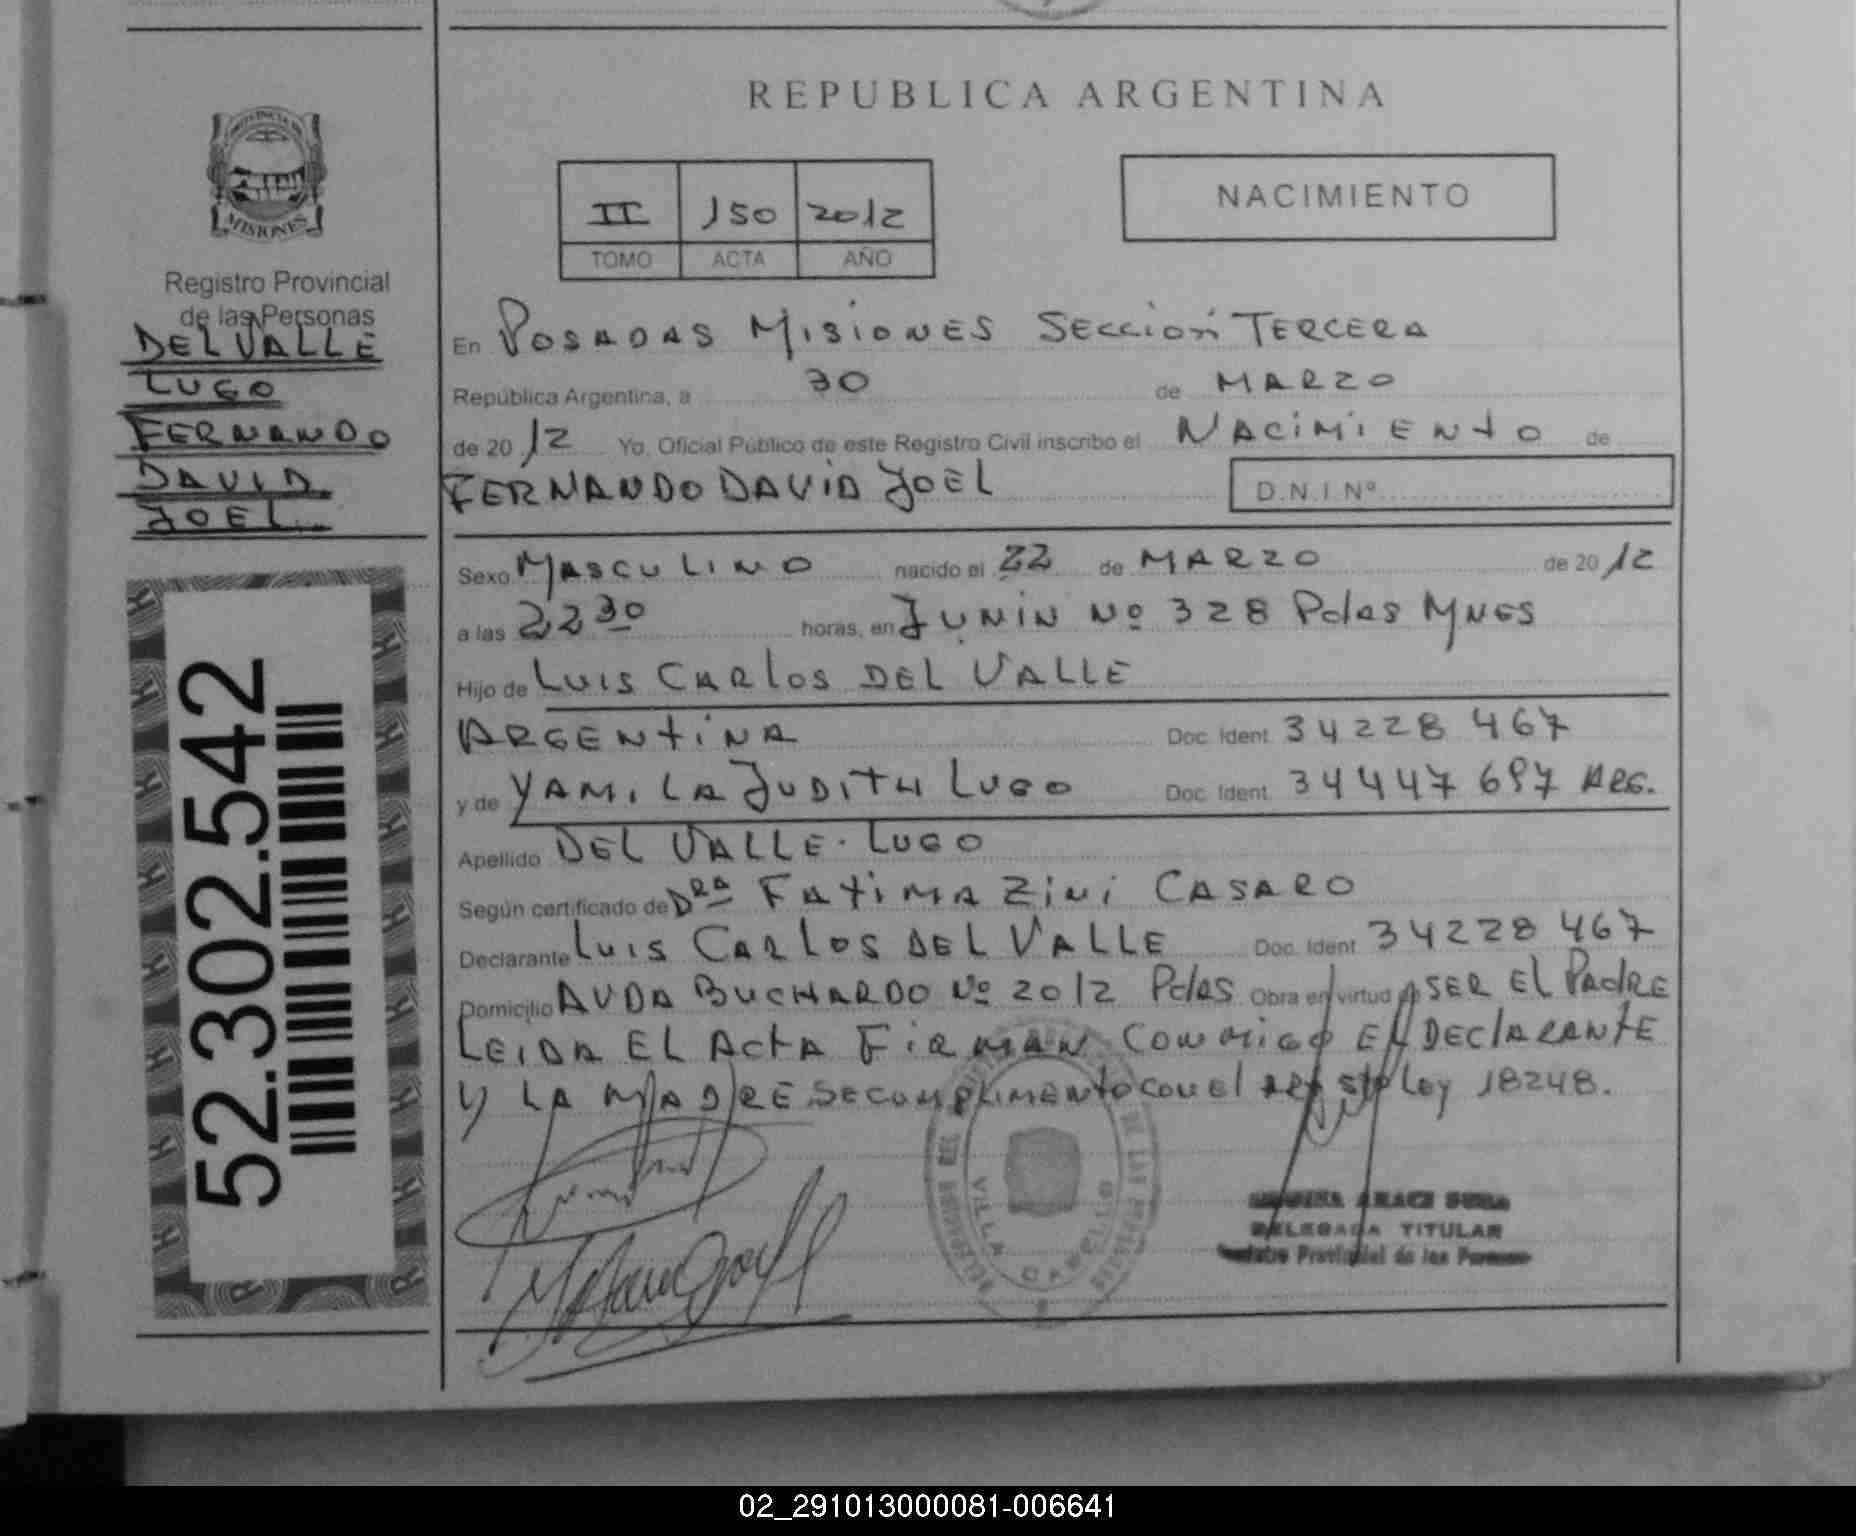 PROVINCIA DE
MISIONES
Registro Provincial
de las Personas
DEL VALLE
LUGO
FERNANDO
DAVID
JOEL
52.302.542
REPUBLICA ARGENTINA
II 150 2012
TOMO ACTA AÑO
NACIMIENTO
En POSADAS MISIONES SECCION TERCERA
República Argentina, a 30 de MARZO
de 2012 Yo, Oficial Público de este Registro Civil inscribo el NACIMIENTO de
FERNANDO DAVID JOEL D.N.I.Nº
Sexo MASCULINO nacido el 22 de MARZO de 2012
a las 22 30 horas, en JUNIN Nº 328 Pdas MNES
Hijo de LUIS CARLOS DEL VALLE
ARGENTINA Doc. Ident. 34228467
y de YAMILA JUDITH LUGO Doc. Ident. 34447697 ARG.
Apellido DEL VALLE · LUGO
Según certificado de DRA FATIMA ZINI CASARO
Declarante LUIS CARLOS DEL VALLE Doc. Ident. 34228467
Domicilio AVDA BUCHARDO Nº 2012 Pdas Obra en virtud SER EL PADRE
LEIDA EL ACTA FIRMAN CONMIGO EL DECLARANTE
Y LA MADRE SE CUMPLIMENTO CON EL Ley 18248.
VILLA CABELLO
DELEGADA TITULAR
Provincial de las Personas
02_291013000081-006641